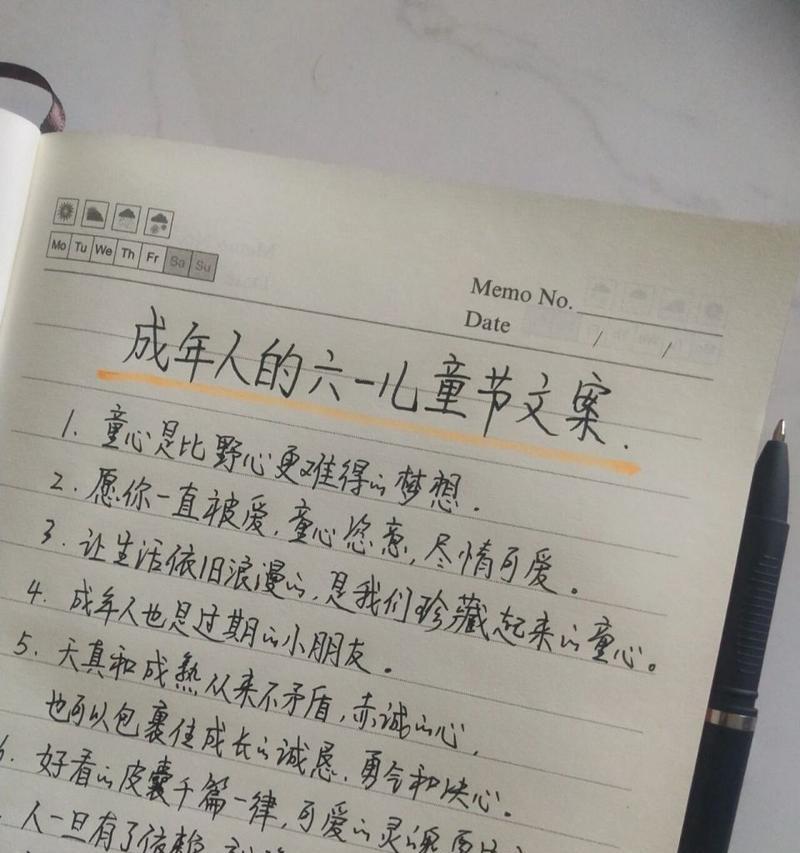 Mo Tu We Th Fr Sa Su
Memo No.
Date / /
成年人的六一儿童节文案.
1. 童心是比野心更难得的梦想.
2. 愿你一直被爱,童心恣意,尽情可爱。
3. 让生活依旧浪漫的,是我们珍藏起来的童心。
4. 成年人也是过期的小朋友。
5. 天真和成熟从来不矛盾,赤诚的心,
也可以包裹住成长的诚恳、勇气和决心。
6. 好看的皮囊千篇一律,可爱的灵魂
人一旦有了依赖